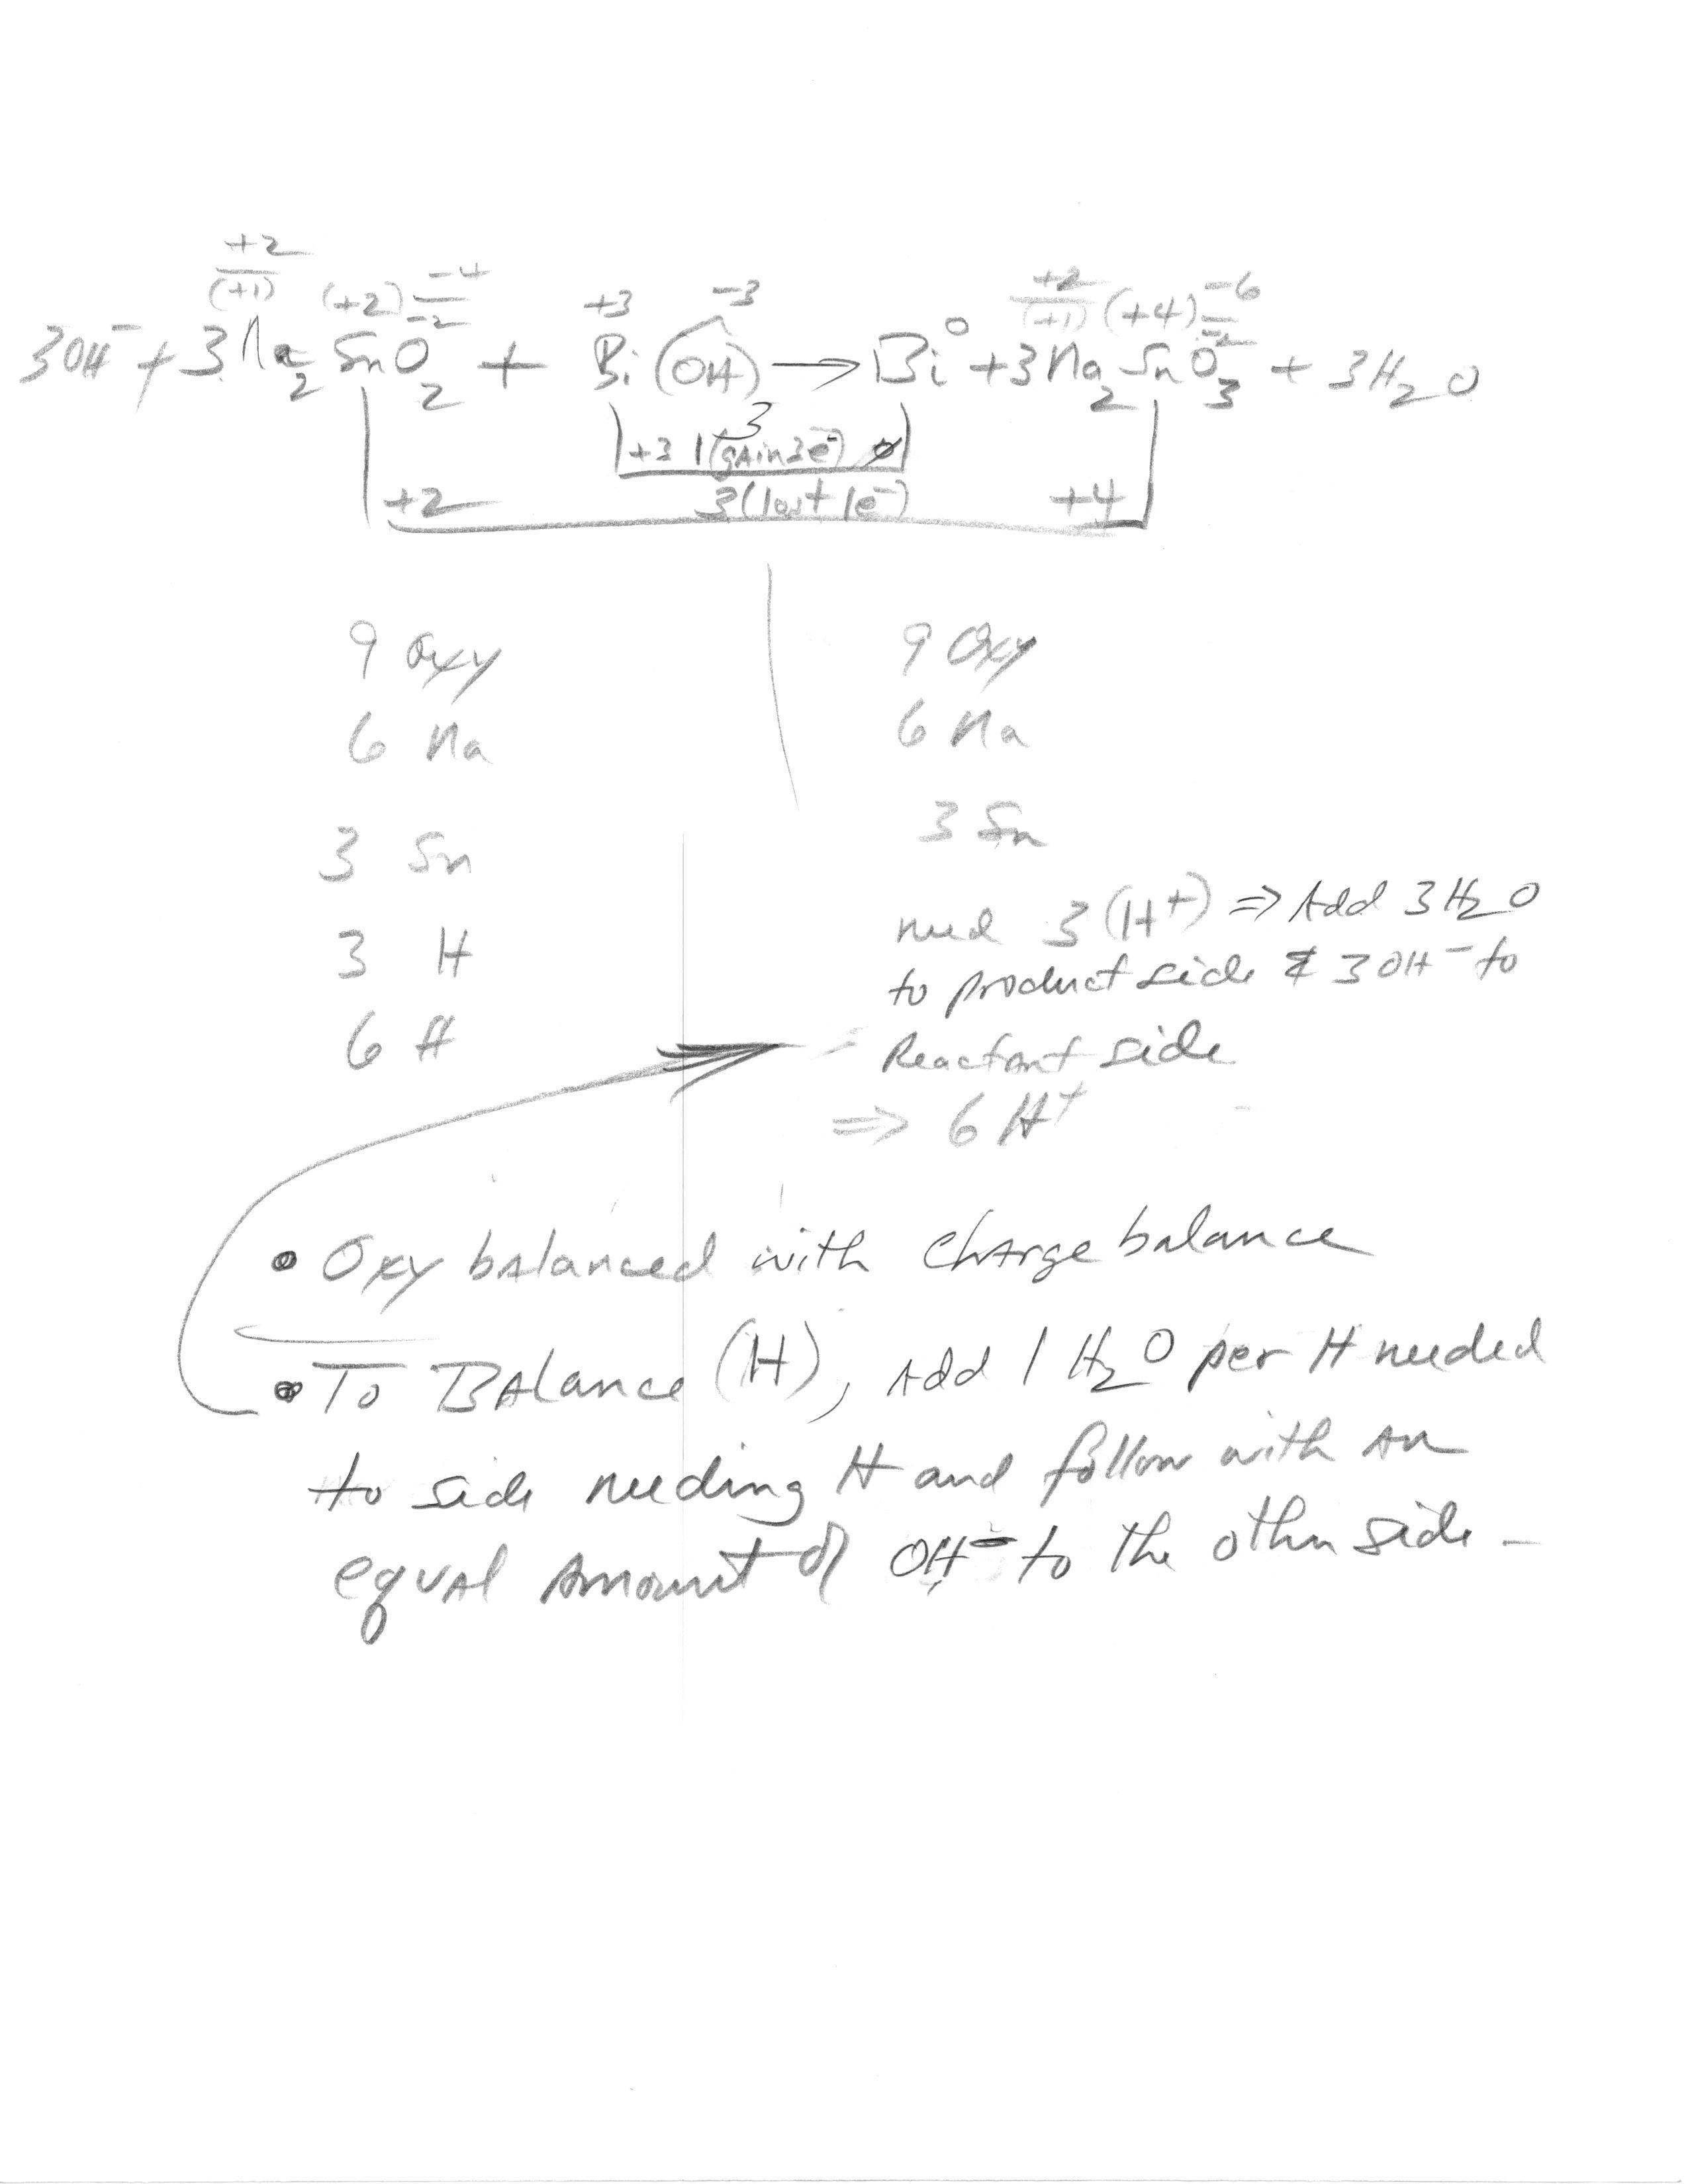 +2 -4 +2 -6
(+1) (+2) -2 +3 -3 0 (+1) (+4) -2
3OH⁻ + 3Na₂SnO₂ + Bi(OH)₃ → Bi + 3Na₂SnO₃ + 3H₂O
+3 1(gain3e⁻) 0
+2 3(lost 1e⁻) +4
9 Oxy 9 Oxy
6 Na 6 Na
3 Sn 3 Sn
3 H need 3(H⁺) ⇒ Add 3H₂O
to product side & 3OH⁻ to
6 H Reactant side
⇒ 6H⁺
• Oxy balanced with Charge balance
• To Balance (H), Add 1 H₂O per H needed
to side needing H and follow with an
equal Amount of OH⁻ to the other side -